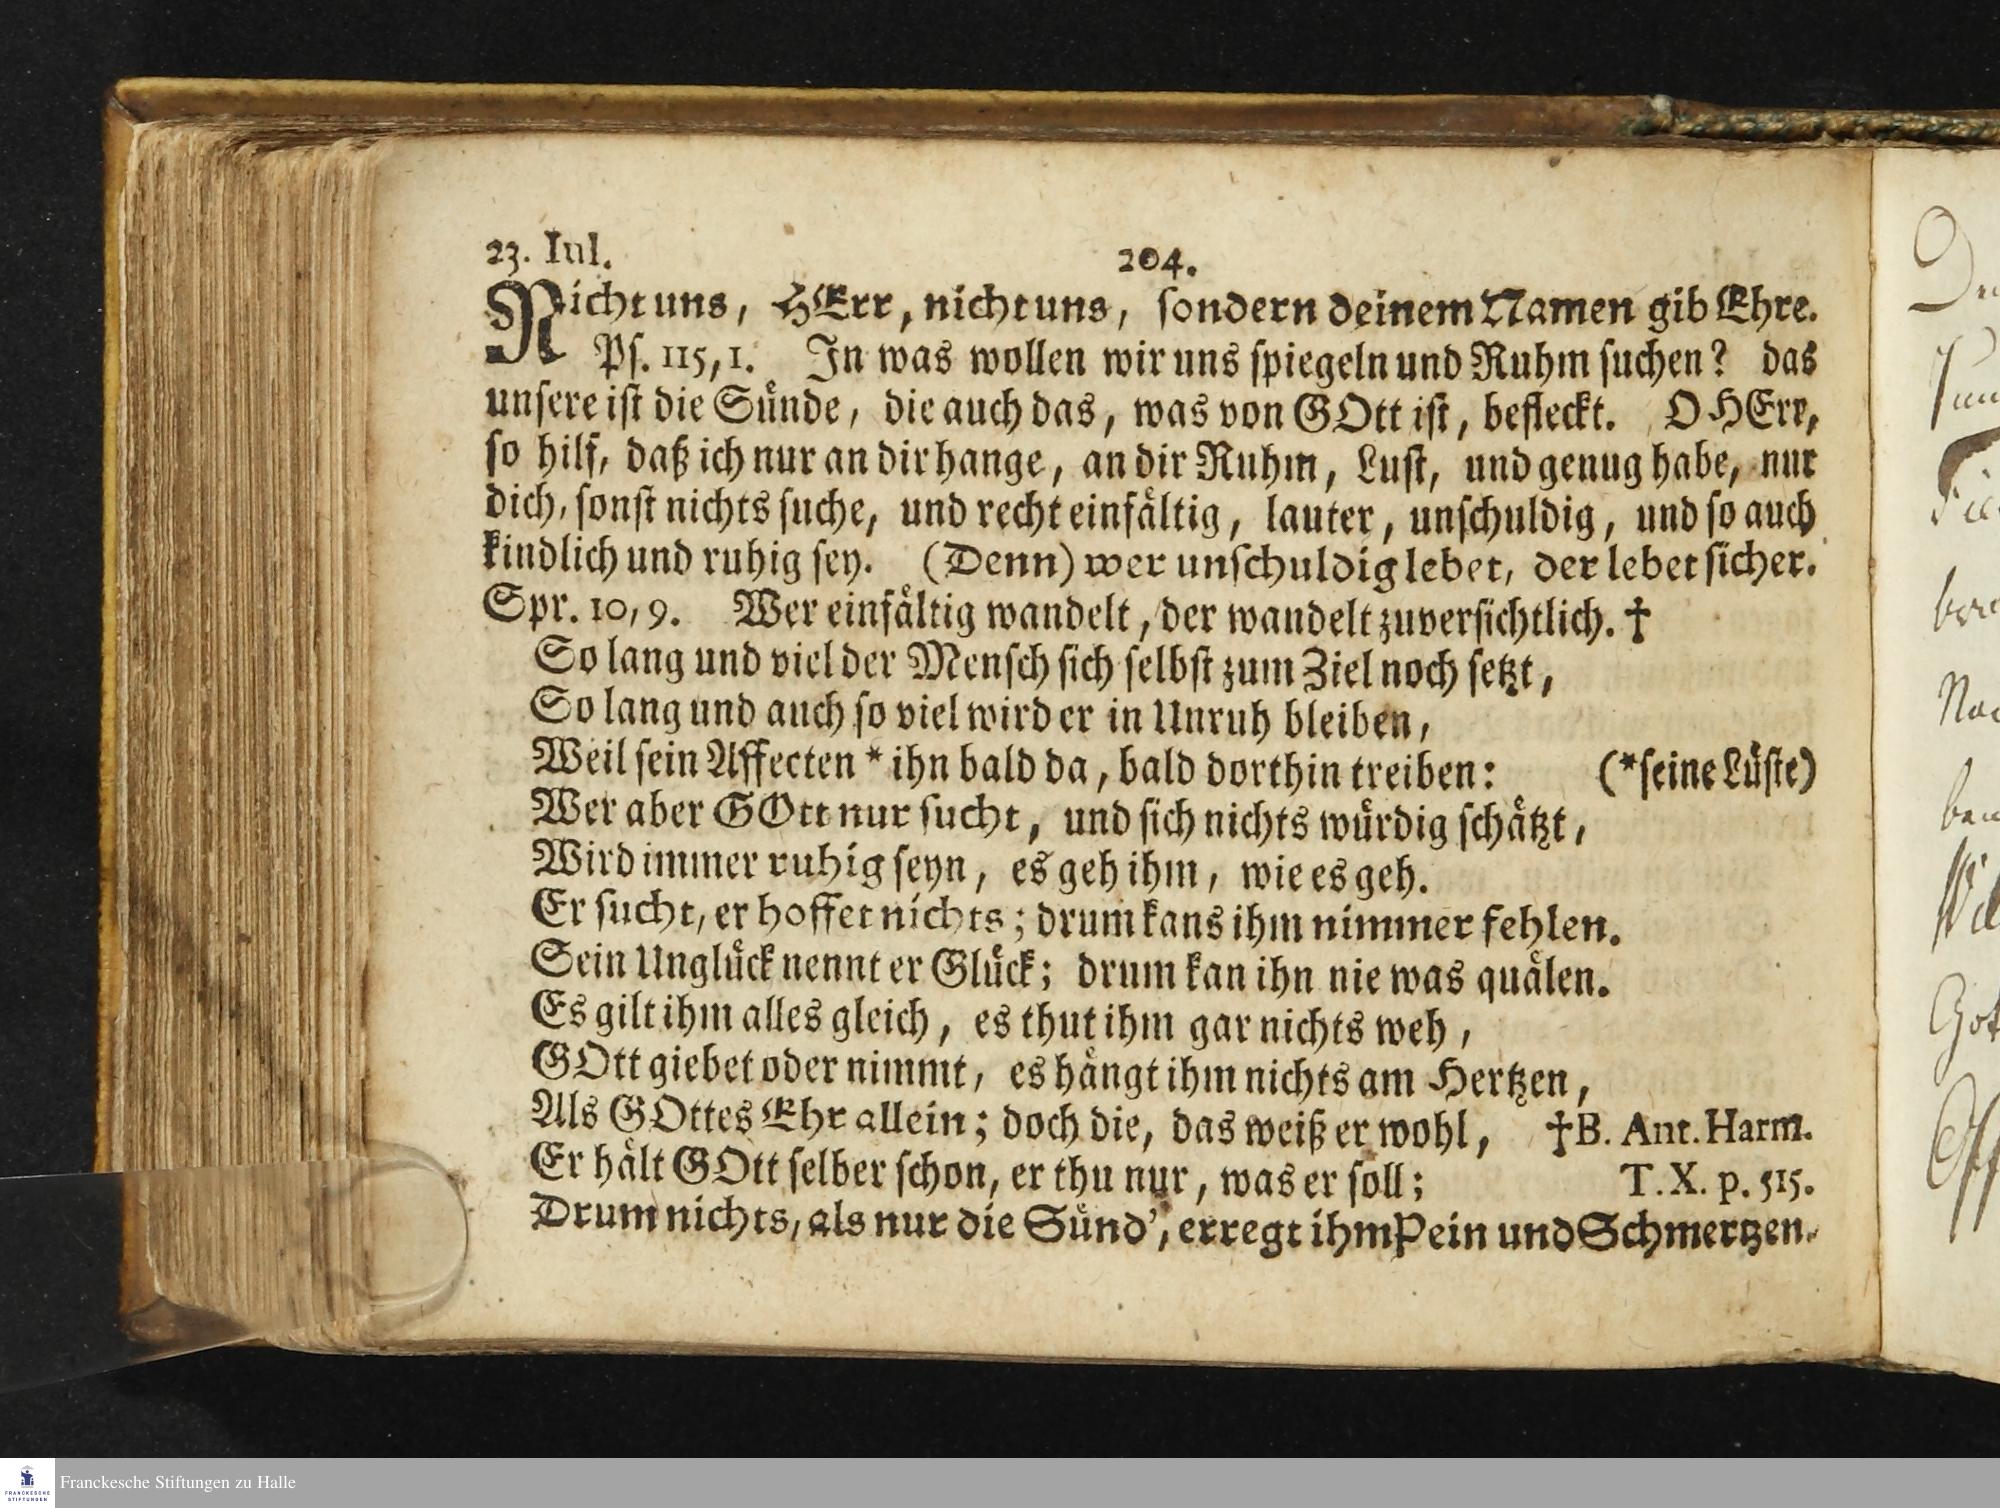 23. Iul.
204.
Nicht uns, HErr, nicht uns, sondern deinem Namen gib Ehre.
Ps. 115, 1. In was wollen wir uns spiegeln und Ruhm suchen? das
unsere ist die Sünde, die auch das, was von GOtt ist, befleckt. O HErr,
so hilf, daß ich nur an dir hange, an dir Ruhm, Lust, und genug habe, nur
dich, sonst nichts suche, und recht einfältig, lauter, unschuldig, und so auch
kindlich und ruhig sey. (Denn) wer unschuldig lebet, der lebet sicher.
Spr. 10, 9. Wer einfältig wandelt, der wandelt zuversichtlich. †
So lang und viel der Mensch sich selbst zum Ziel noch setzt,
So lang und auch so viel wird er in Unruh bleiben,
Weil sein Affecten * ihn bald da, bald dorthin treiben: (* seine Lüste)
Wer aber GOtt nur sucht, und sich nichts würdig schätzt,
Wird immer ruhig seyn, es geh ihm, wie es geh.
Er sucht, er hoffet nichts; drum kans ihm nimmer fehlen.
Sein Unglück nennt er Glück; drum kan ihn nie was quälen.
Es gilt ihm alles gleich, es thut ihm gar nichts weh,
GOtt giebet oder nimmt, es hängt ihm nichts am Hertzen,
Als GOttes Ehr allein; doch die, das weiß er wohl, † B. Ant. Harm.
Er hält GOtt selber schon, er thu nur, was er soll; T. X. p. 515.
Drum nichts, als nur die Sünd', erregt ihm Pein und Schmertzen.
FRANCKESCHE
STIFTUNGEN
Franckesche Stiftungen zu Halle